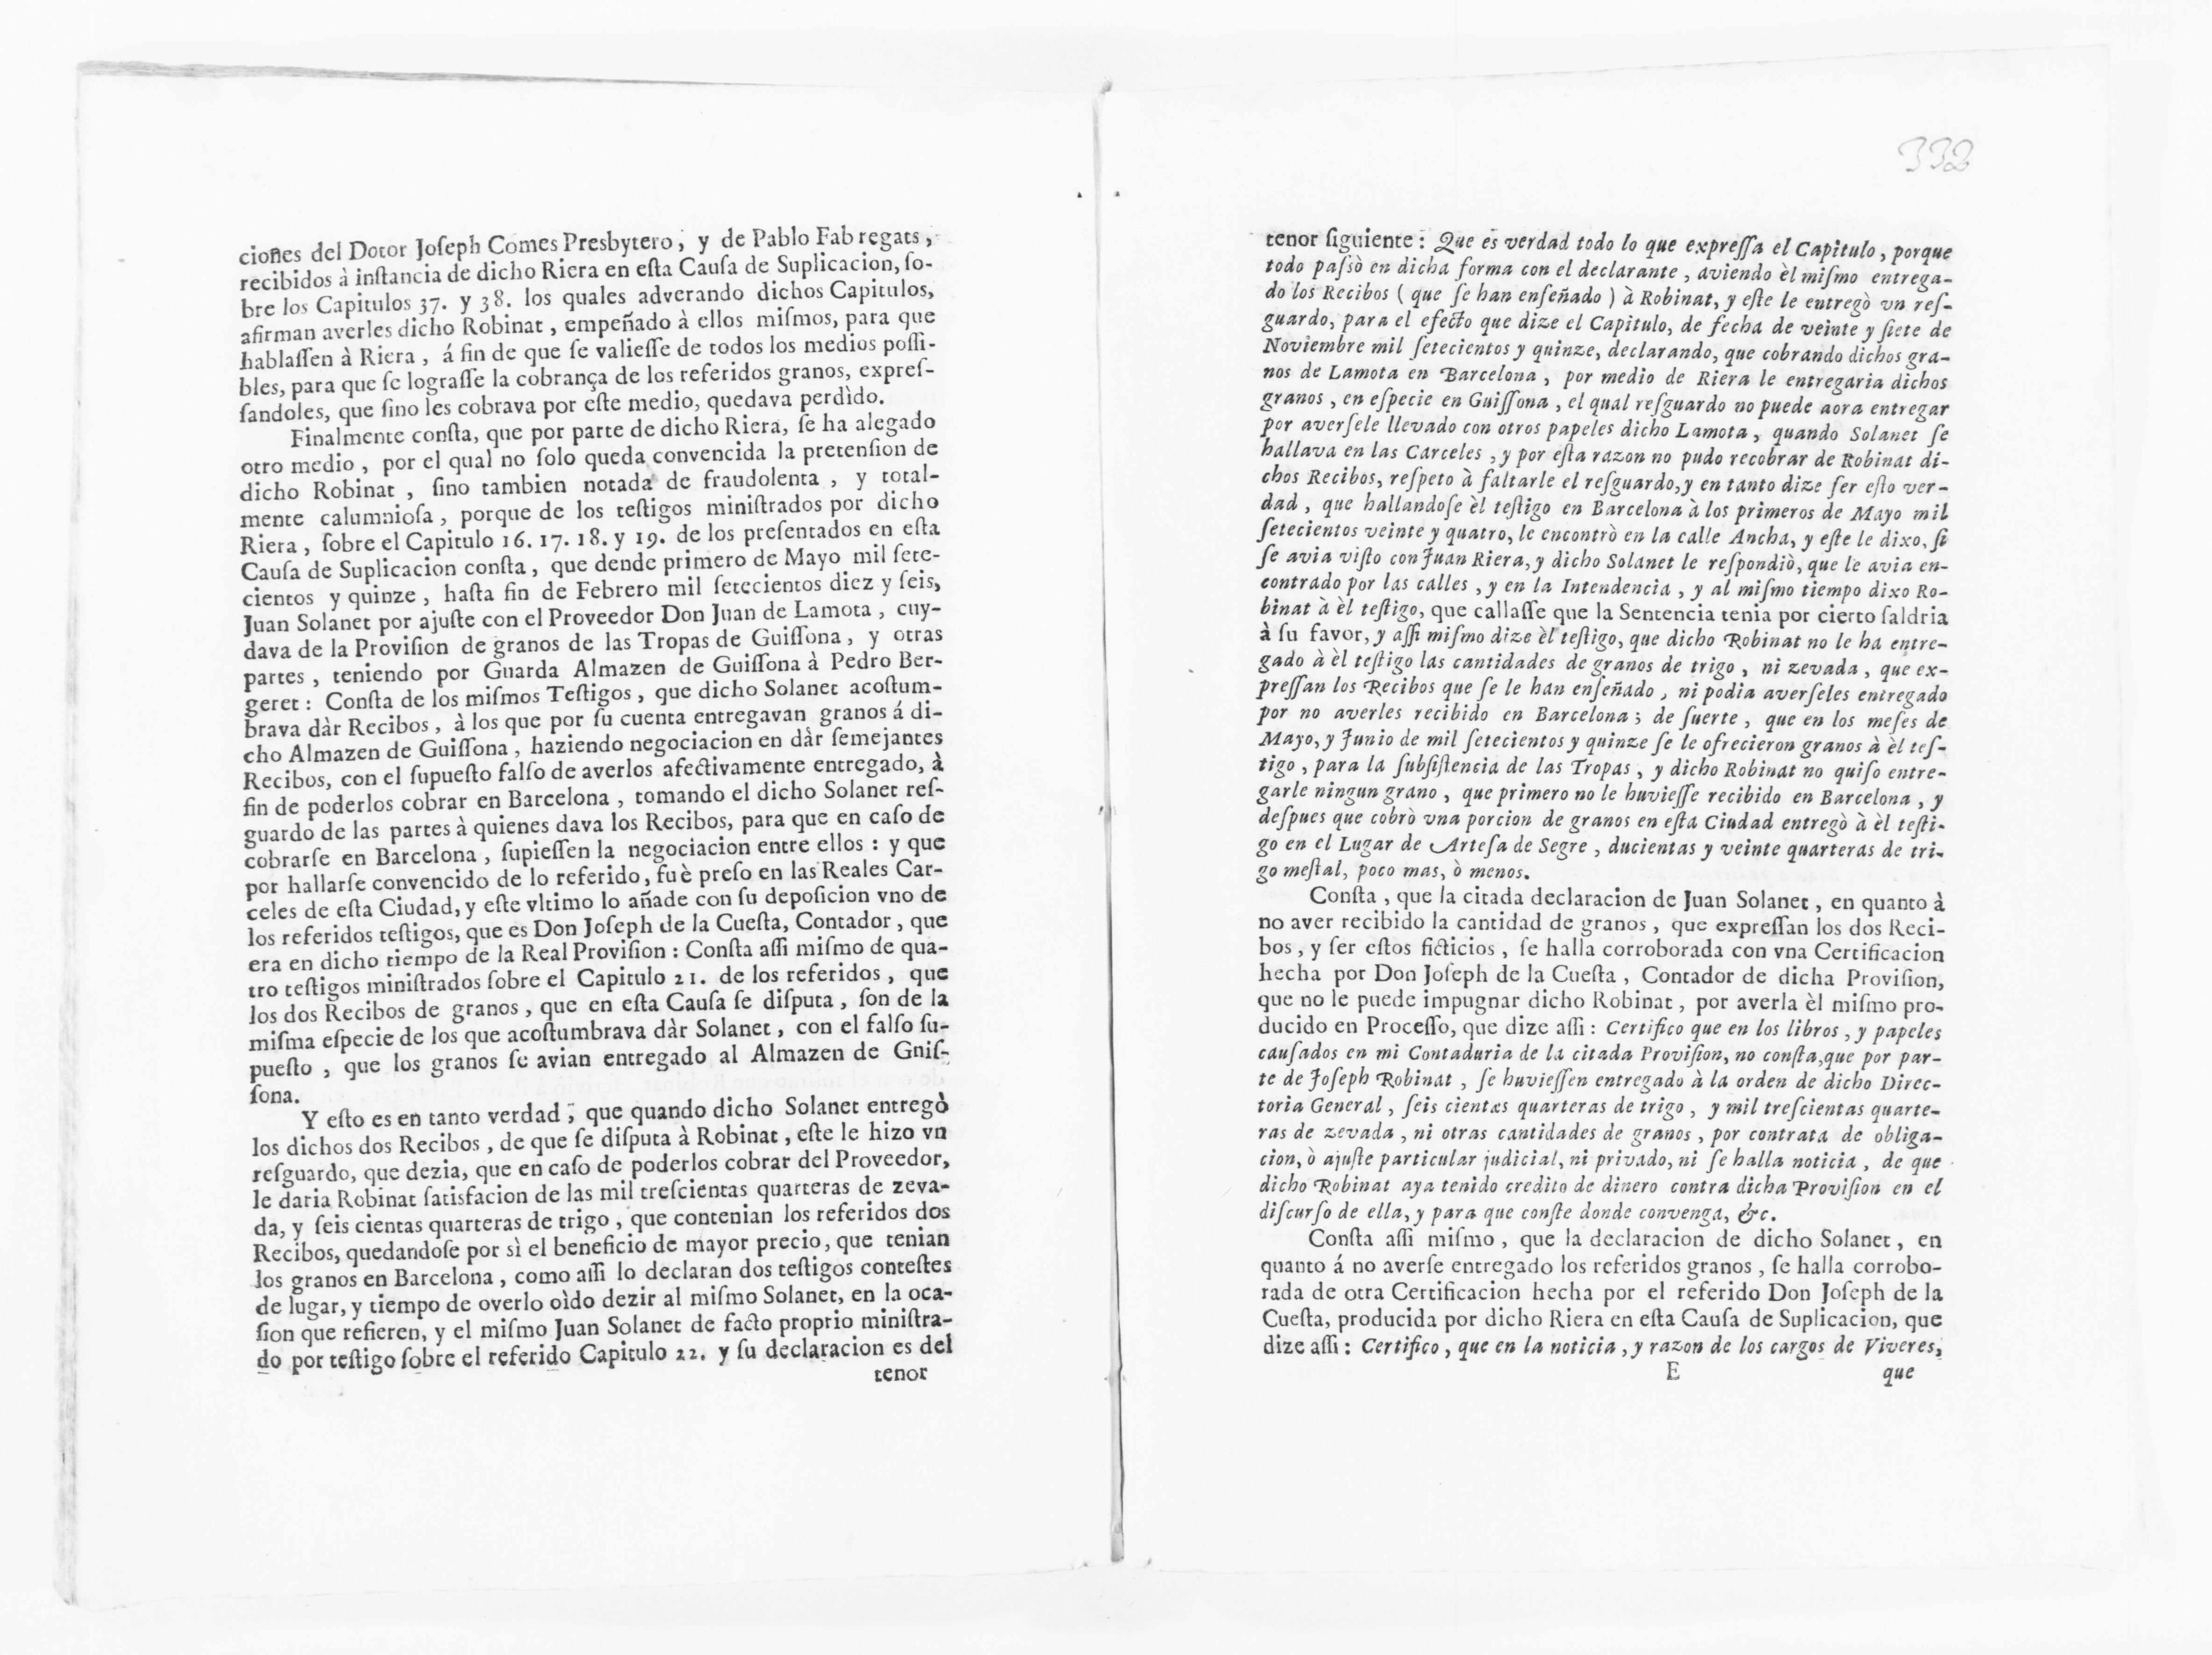 ciones del Dotor Joſeph Comes Presbytero, y de Pablo Fab regats,
recibidos à inſtancia de dicho Riera en eſta Cauſa de Suplicacion, ſo-
bre los Capitulos 37. y 38. los quales adverando dichos Capitulos,
afirman averles dicho Robinat, empeñado à ellos miſmos, para que
hablaſſen à Riera, á fin de que ſe valieſſe de todos los medios poſſi-
bles, para que ſe lograſſe la cobrança de los referidos granos, expreſ-
ſandoles, que ſino les cobrava por eſte medio, quedava perdìdo.
Finalmente conſta, que por parte de dicho Riera, ſe ha alegado
otro medio, por el qual no ſolo queda convencida la pretenſion de
dicho Robinat, ſino tambien notada de fraudolenta, y total-
mente calumnioſa, porque de los teſtigos miniſtrados por dicho
Riera, ſobre el Capitulo 16. 17. 18. y 19. de los preſentados en eſta
Cauſa de Suplicacion conſta, que dende primero de Mayo mil ſete-
cientos y quinze, haſta fin de Febrero mil ſetecientos diez y ſeis,
Juan Solanet por ajuſte con el Proveedor Don Juan de Lamota, cuy-
dava de la Proviſion de granos de las Tropas de Guiſſona, y otras
partes, teniendo por Guarda Almazen de Guiſſona à Pedro Ber-
geret: Conſta de los miſmos Teſtigos, que dicho Solanet acoſtum-
brava dàr Recibos, à los que por ſu cuenta entregavan granos á di-
cho Almazen de Guiſſona, haziendo negociacion en dàr ſemejantes
Recibos, con el ſupueſto falſo de averlos afectivamente entregado, à
fin de poderlos cobrar en Barcelona, tomando el dicho Solanet reſ-
guardo de las partes à quienes dava los Recibos, para que en caſo de
cobrarſe en Barcelona, ſupieſſen la negociacion entre ellos: y que
por hallarſe convencido de lo referido, fuè preſo en las Reales Car-
celes de eſta Ciudad, y eſte vltimo lo añade con ſu depoſicion vno de
los referidos teſtigos, que es Don Joſeph de la Cueſta, Contador, que
era en dicho tiempo de la Real Proviſion: Conſta aſſi miſmo de qua-
tro teſtigos miniſtrados ſobre el Capitulo 21. de los referidos, que
los dos Recibos de granos, que en eſta Cauſa ſe diſputa, ſon de la
miſma eſpecie de los que acoſtumbrava dàr Solanet, con el falſo ſu-
pueſto, que los granos ſe avian entregado al Almazen de Gniſ-
ſona.
Y eſto es en tanto verdad, que quando dicho Solanet entregò
los dichos dos Recibos, de que ſe diſputa à Robinat, eſte le hizo vn
reſguardo, que dezia, que en caſo de poderlos cobrar del Proveedor,
le daria Robinat ſatisfacion de las mil treſcientas quarteras de zeva-
da, y ſeis cientas quarteras de trigo, que contenian los referidos dos
Recibos, quedandoſe por sì el beneficio de mayor precio, que tenian
los granos en Barcelona, como aſſi lo declaran dos teſtigos conteſtes
de lugar, y tiempo de overlo oìdo dezir al miſmo Solanet, en la oca-
ſion que refieren, y el miſmo Juan Solanet de facto proprio miniſtra-
do por teſtigo ſobre el referido Capitulo 22. y ſu declaracion es del
tenor
332
tenor ſiguiente: Que es verdad todo lo que expreſſa el Capitulo, porque
todo paſsò en dicha forma con el declarante, aviendo èl miſmo entrega-
do los Recibos (que ſe han enſeñado) à Robinat, y eſte le entregò vn reſ-
guardo, para el efecto que dize el Capitulo, de fecha de veinte y ſiete de
Noviembre mil ſetecientos y quinze, declarando, que cobrando dichos gra-
nos de Lamota en Barcelona, por medio de Riera le entregaria dichos
granos, en eſpecie en Guiſſona, el qual reſguardo no puede aora entregar
por averſele llevado con otros papeles dicho Lamota, quando Solanet ſe
hallava en las Carceles, y por eſta razon no pudo recobrar de Robinat di-
chos Recibos, reſpeto à faltarle el reſguardo, y en tanto dize ſer eſto ver-
dad, que hallandoſe èl teſtigo en Barcelona à los primeros de Mayo mil
ſetecientos veinte y quatro, le encontrò en la calle Ancha, y eſte le dixo, ſi
ſe avia viſto con Juan Riera, y dicho Solanet le reſpondiò, que le avia en-
contrado por las calles, y en la Intendencia, y al miſmo tiempo dixo Ro-
binat à èl teſtigo, que callaſſe que la Sentencia tenia por cierto ſaldria
à ſu favor, y aſſi miſmo dize èl teſtigo, que dicho Robinat no le ha entre-
gado à èl teſtigo las cantidades de granos de trigo, ni zevada, que ex-
preſſan los Recibos que ſe le han enſeñado, ni podia averſeles entregado
por no averles recibido en Barcelona; de ſuerte, que en los meſes de
Mayo, y Junio de mil ſetecientos y quinze ſe le ofrecieron granos à èl teſ-
tigo, para la ſubſiſtencia de las Tropas, y dicho Robinat no quiſo entre-
garle ningun grano, que primero no le huvieſſe recibido en Barcelona, y
deſpues que cobrò vna porcion de granos en eſta Ciudad entregò à èl teſti-
go en el Lugar de Arteſa de Segre, ducientas y veinte quarteras de tri-
go meſtal, poco mas, ò menos.
Conſta, que la citada declaracion de Juan Solanet, en quanto à
no aver recibido la cantidad de granos, que expreſſan los dos Reci-
bos, y ſer eſtos ficticios, ſe halla corroborada con vna Certificacion
hecha por Don Joſeph de la Cueſta, Contador de dicha Proviſion,
que no le puede impugnar dicho Robinat, por averla èl miſmo pro-
ducido en Proceſſo, que dize aſſi: Certifico que en los libros, y papeles
cauſados en mi Contaduria de la citada Proviſion, no conſta, que por par-
te de Joſeph Robinat, ſe huvieſſen entregado à la orden de dicho Direc-
toria General, ſeis cientas quarteras de trigo, y mil treſcientas quarte-
ras de zevada, ni otras cantidades de granos, por contrata de obliga-
cion, ò ajuſte particular judicial, ni privado, ni ſe halla noticia, de que
dicho Robinat aya tenido credito de dinero contra dicha Proviſion en el
diſcurſo de ella, y para que conſte donde convenga, &c.
Conſta aſſi miſmo, que la declaracion de dicho Solanet, en
quanto á no averſe entregado los referidos granos, ſe halla corrobo-
rada de otra Certificacion hecha por el referido Don Joſeph de la
Cueſta, producida por dicho Riera en eſta Cauſa de Suplicacion, que
dize aſſi: Certifico, que en la noticia, y razon de los cargos de Viveres,
E que